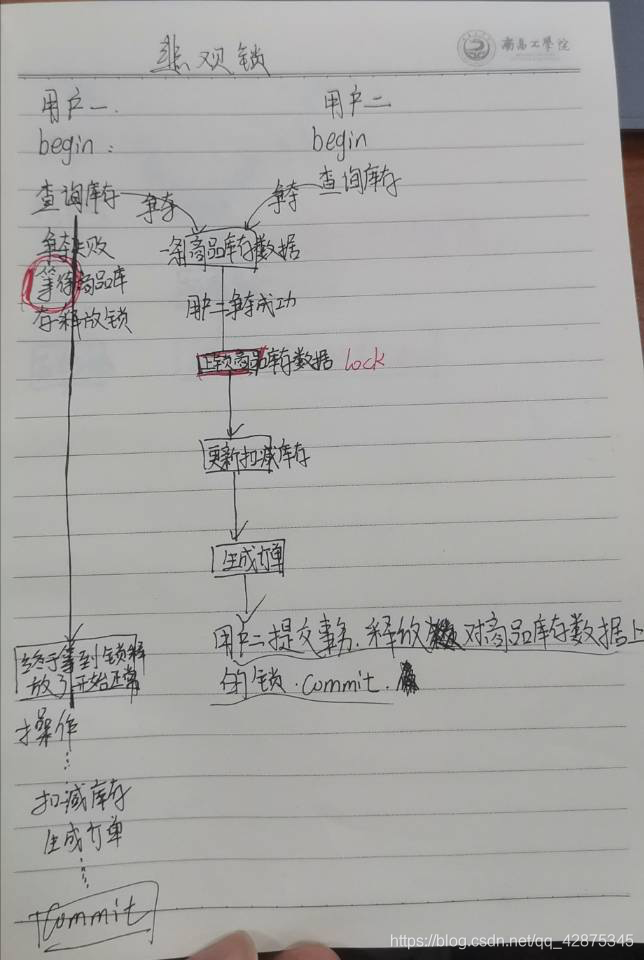 悲观锁
南昌工學院
用户一.
用户二
begin:
begin
查询库存
争夺
争夺
查询库存
争夺失败
一条商品库存数据
等待商品库
存释放锁
用户二争夺成功
上锁商品库存数据 lock
更新扣减库存
生成订单
用户二提交事务.释放对商品库存数据上
的锁.commit.
终于等到锁释
放了开始正常
操作
扣减库存
生成订单
commit
https://blog.csdn.net/qq_42875345